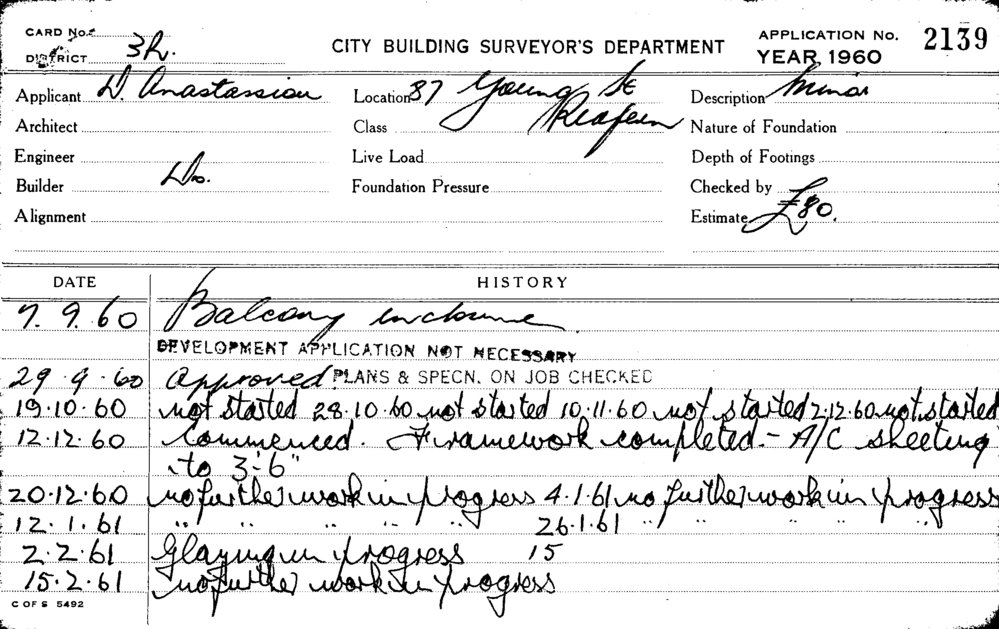 CARD No. CITY BUILDING SURVEYOR'S DEPARTMENT APPLICATION No. 2139
DISTRICT 3R. YEAR 1960
Applicant D. Anastassiou Location 87 Young St Description Minor
Architect Class Redfern Nature of Foundation
Engineer Live Load Depth of Footings
Builder Do. Foundation Pressure Checked by
Alignment Estimate £80.
DATE HISTORY
7. 9. 60 Balcony enclosure.
DEVELOPMENT APPLICATION NOT NECESSARY
29 . 9 . 60 Approved PLANS & SPECN. ON JOB CHECKED
19.10.60 not started 28.10.60 not started 10.11.60 not started 2.12.60 not started
12.12.60 Commenced. Framework completed - A/C sheeting
to 3'-6"
20.12.60 no further work in progress 4.1.61 no further work in progress
12.1.61 " " " " " 26.1.61 " " " " "
2.2.61 Glazing in progress 15
15.2.61 no further work in progress
C OF S 5492